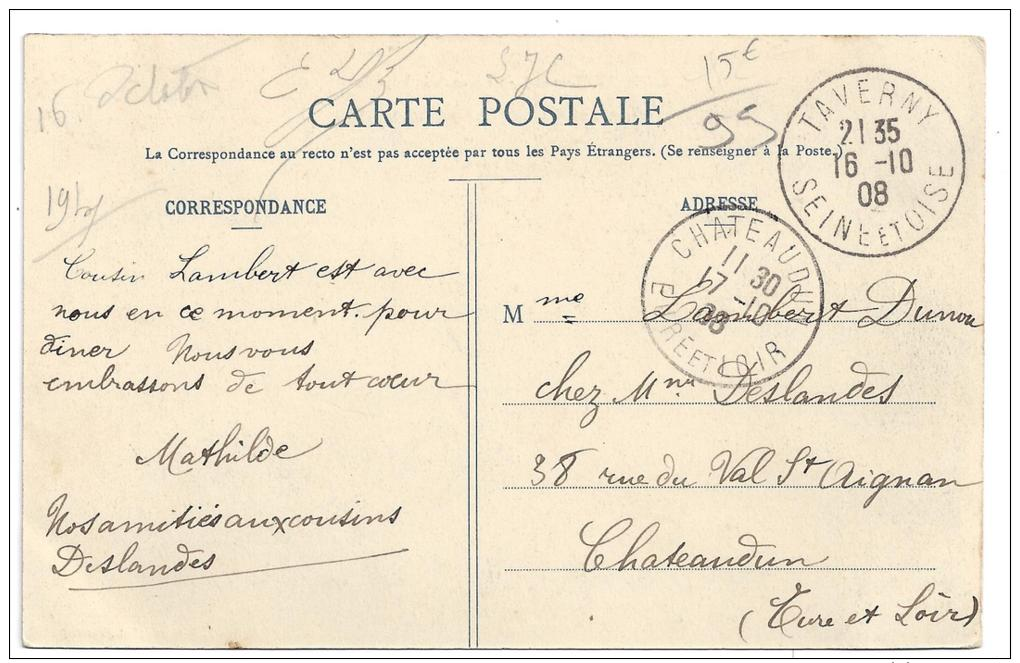 16
15€
95
CARTE POSTALE
La Correspondance au recto n'est pas acceptée par tous les Pays Étrangers. (Se renseigner à la Poste.)
TAVERNY
21 35
16 -10
08
SEINE ET OISE
CORRESPONDANCE
Cousin Lambert est avec
nous en ce moment pour
diner Nous vous
embrassons de tout cœur
Mathilde
Nos amitiés aux cousins
Deslandes
ADRESSE
CHATEAUDUN
11 30
17 -10
08
EURE ET LOIR
Mme Lambert Dunou
chez Mme Deslandes
38 rue du Val St Aignan
Chateaudun
(Eure et Loir)